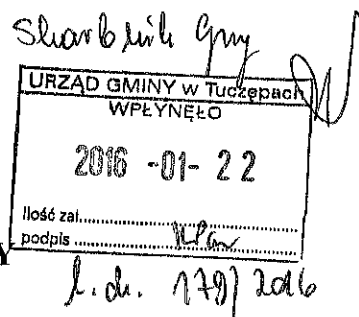 Skarbnik Gminy
URZĄD GMINY w Tuczępach
WPŁYNĘŁO
2016 -01- 22
Ilość zał.............
podpis .............
l.dz. 179/2016